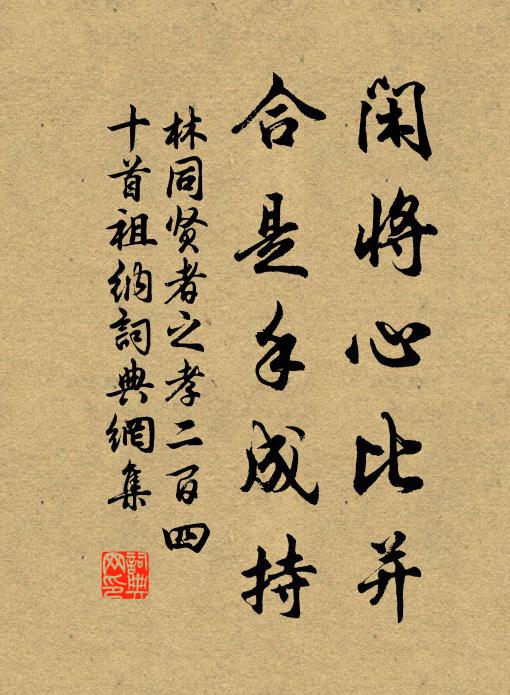 闲将心比并
合是手成持
林同贤者之孝二百四
十首祖纳詞典網集
詞典网印